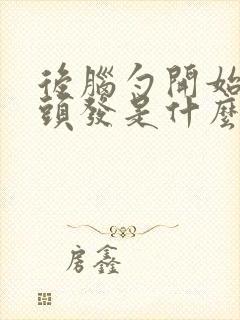 後腦勺開始
頭發是什麼
房鑫